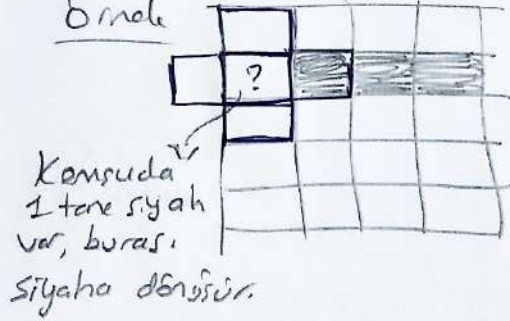 Örnek
?
Komşuda
1 tane siyah
var, burası
siyaha dönüşür.